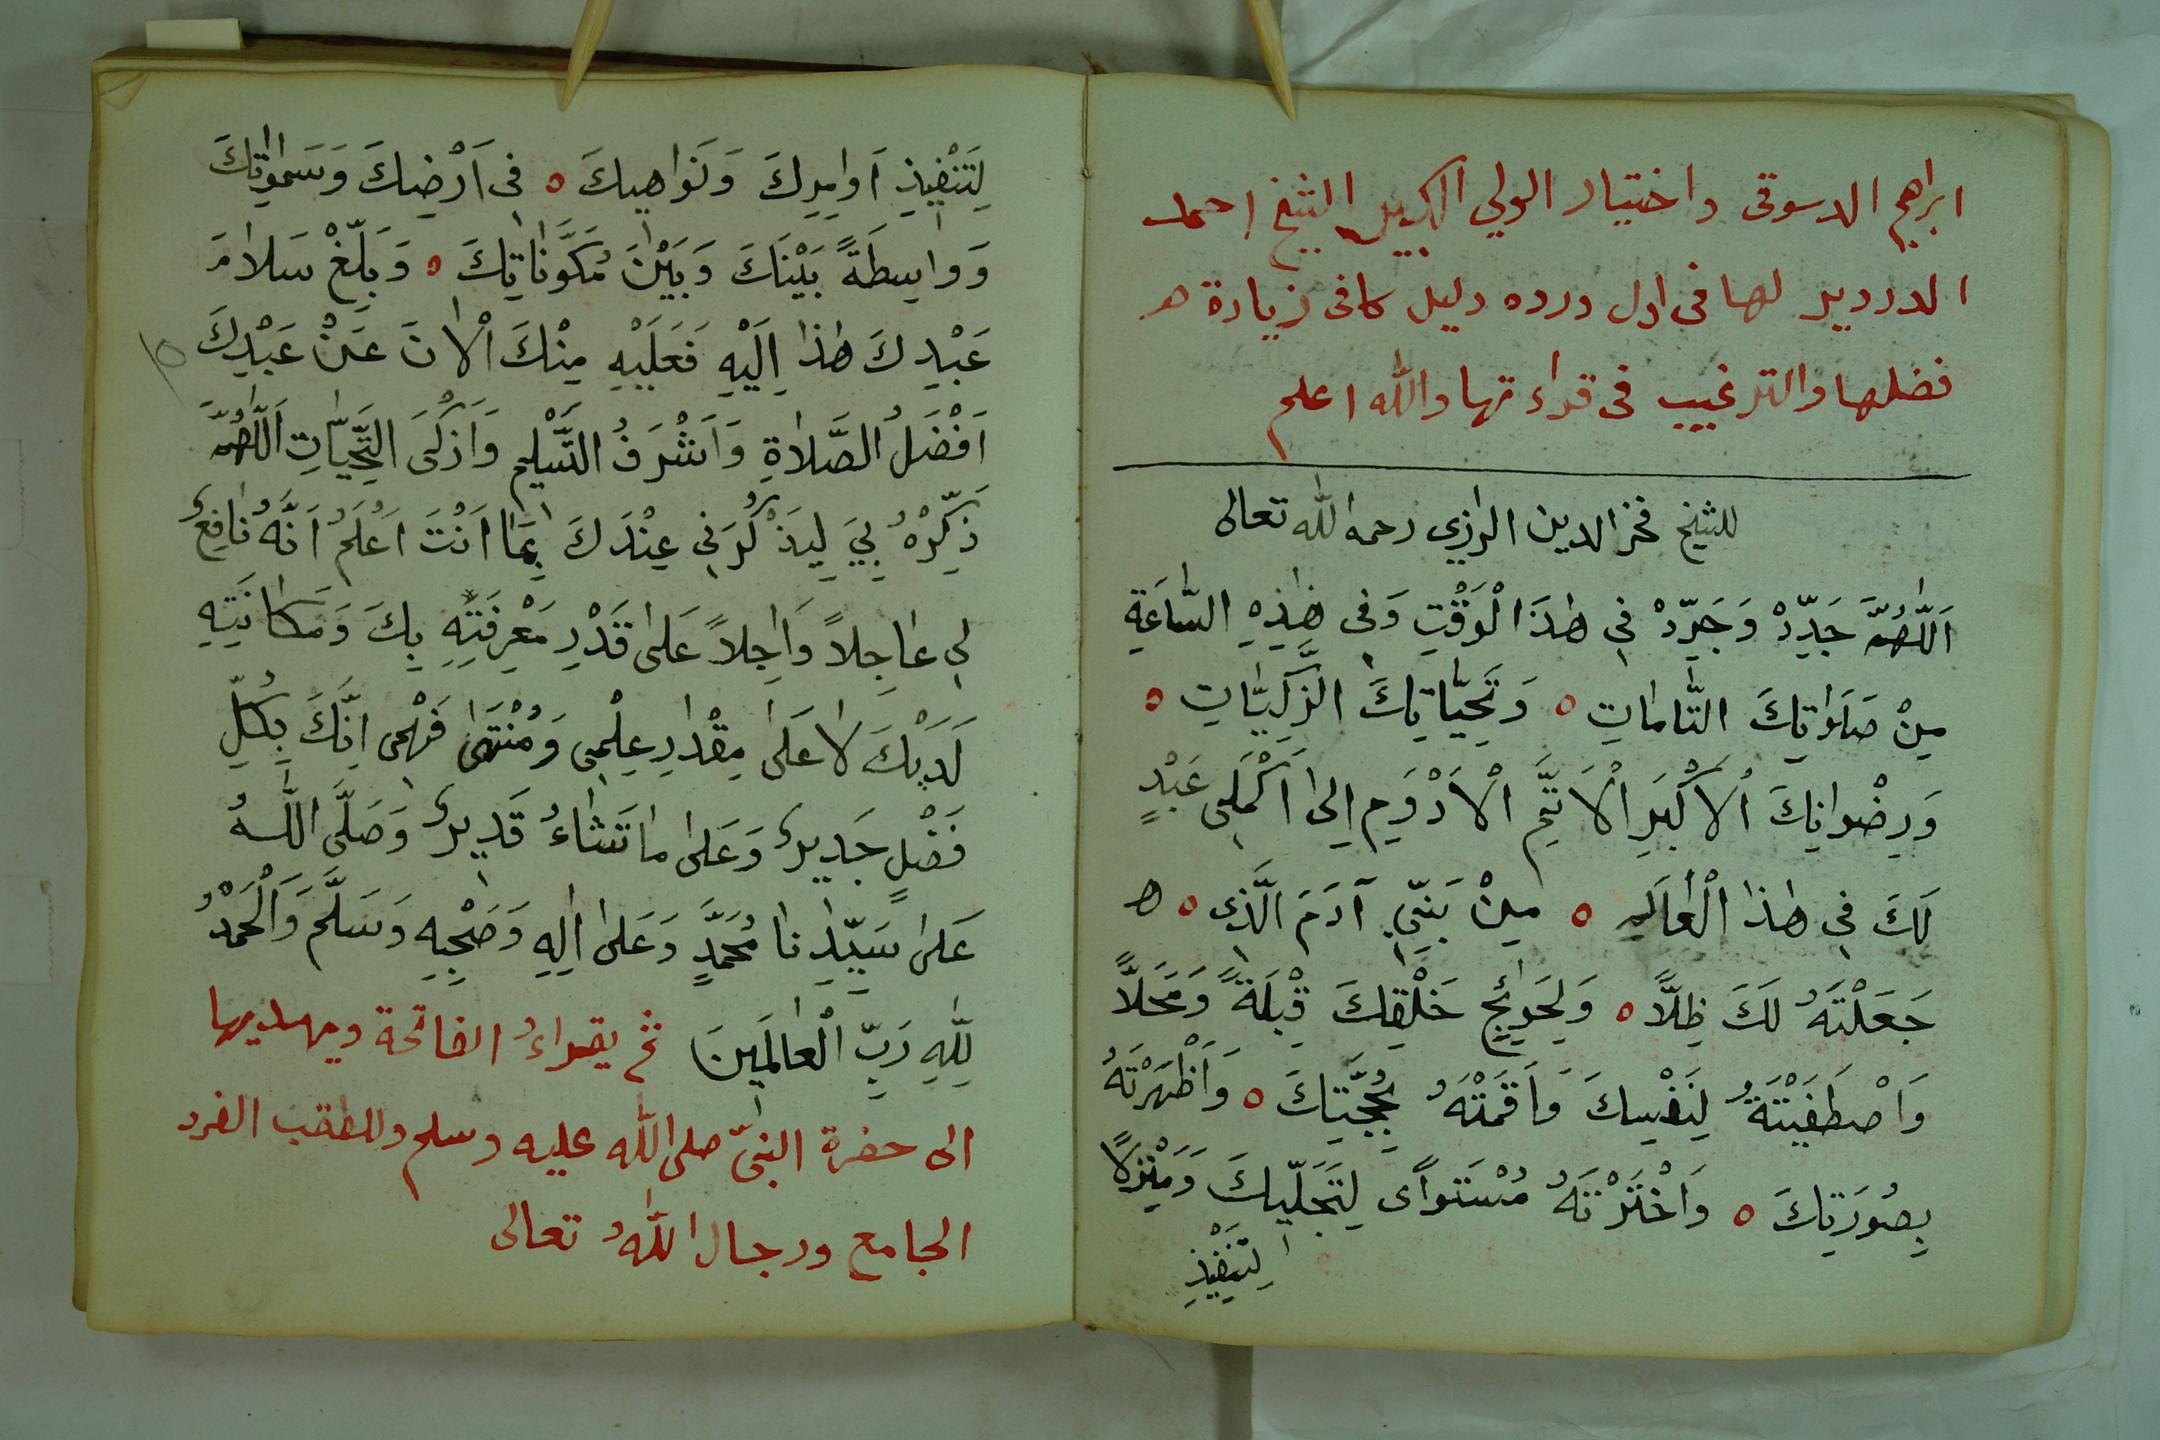 ابراهيم الدسوقى واختيار الولي الكبير الشيخ احمد
الدردير لها فى اول ورده دليل كافى زيادة هـ
فضلها والترغيب فى قراءتها والله اعلم
للشيخ فخر الدين الرازي رحمه الله تعالى
اَللّٰهُمَّ جَدِّدْ وَجَرِّدْ فِى هٰذَا لْوَقْتِ وَفِى هٰذِهِ السَّاعَةِ
مِنْ صَلَوٰاتِكَ التَّامَاتِ ه وَتَحِيَّاتِكَ الزَّكِيَّاتِ ه
وَرِضْوَانِكَ اْلاَكْبَرِ اْلاَتَمِّ اْلاَدْوَمِ اِلىٰ اَكْمَلِ عَبْدٍ
لَكَ فِى هٰذَا الْعٰالَمِ ه مِنْ بَنِي آدَمَ الَّذِى ه هـ
جَعَلْتَهُ لَكَ ظِلاًّ ه وَلِحَوٰائِجِ خَلْقِكَ قِبْلَةً وَمَحَلاًّ
وَاْصْطَفَيْتَهُ لِنَفْسِكَ وَاَقَمْتَهُ بِحُجَّتِكَ ه وَاَظْهَرْتَهُ
بِصُورَتِكَ ه وَاخْتَرْتَهُ مُسْتَواًى لِتَجَلِّيكَ وَمَنْزِلاً
لِتَنْفِيْذِ
لِتَنْفِيذِ اَوَامِرِكَ وَنَوَاهِيكَ ه فِى اَرْضِكَ وَسَمٰوٰاتِكَ
وَوَاسِطَةً بَيْنَكَ وَبَيْنَ مُكَوَّنَاتِكَ ه وَبَلِّغْ سَلاٰمَ
عَبْدِكَ هٰذَا اِلَيْهِ فَعَلَيْهِ مِنْكَ اْلاٰنَ عَنْ عَبْدِكَ
اَفْضَلُ الصَّلاٰةِ وَاَشْرَفُ التَّسْلِيمِ وَاَزْكَى التَّحِيَّاتِ اَللّٰهُمَّ
ذَكِّرْهُ بِيَ لِيَذْكُرَنِى عِنْدَكَ بِمَا اَنْتَ اَعْلَمُ اَنَّهُ نَافِعٌ
لِى عٰاجِلاً وَاٰجِلاً عَلىٰ قَدْرِ مَعْرِفَتِهِ بِكَ وَمَكَانَتِهِ
لَدَيْكَ لاٰ عَلىٰ مِقْدٰارِ عِلْمِى وَمُنْتَهىٰ فَهْمِى اِنَّكَ بِكُلِّ
فَضْلٍ جَدِيرٌ وَعَلىٰ مَا تَشَاءُ قَدِيرٌ وَصَلَّى اللّٰهُ
عَلىٰ سَيِّدِنَا مُحَمَّدٍ وَعَلىٰ اٰلِهِ وَصَحْبِهِ وَسَلَّمَ وَالْحَمْدُ
لِلّٰهِ رَبِّ الْعٰالَمِينَ ثم يقراءُ الفاتحة ويهديها
الى حضرة النبىّ صلى الله عليه وسلم وللقطب الفرد
الجامع ورجال اللهُ تعالى